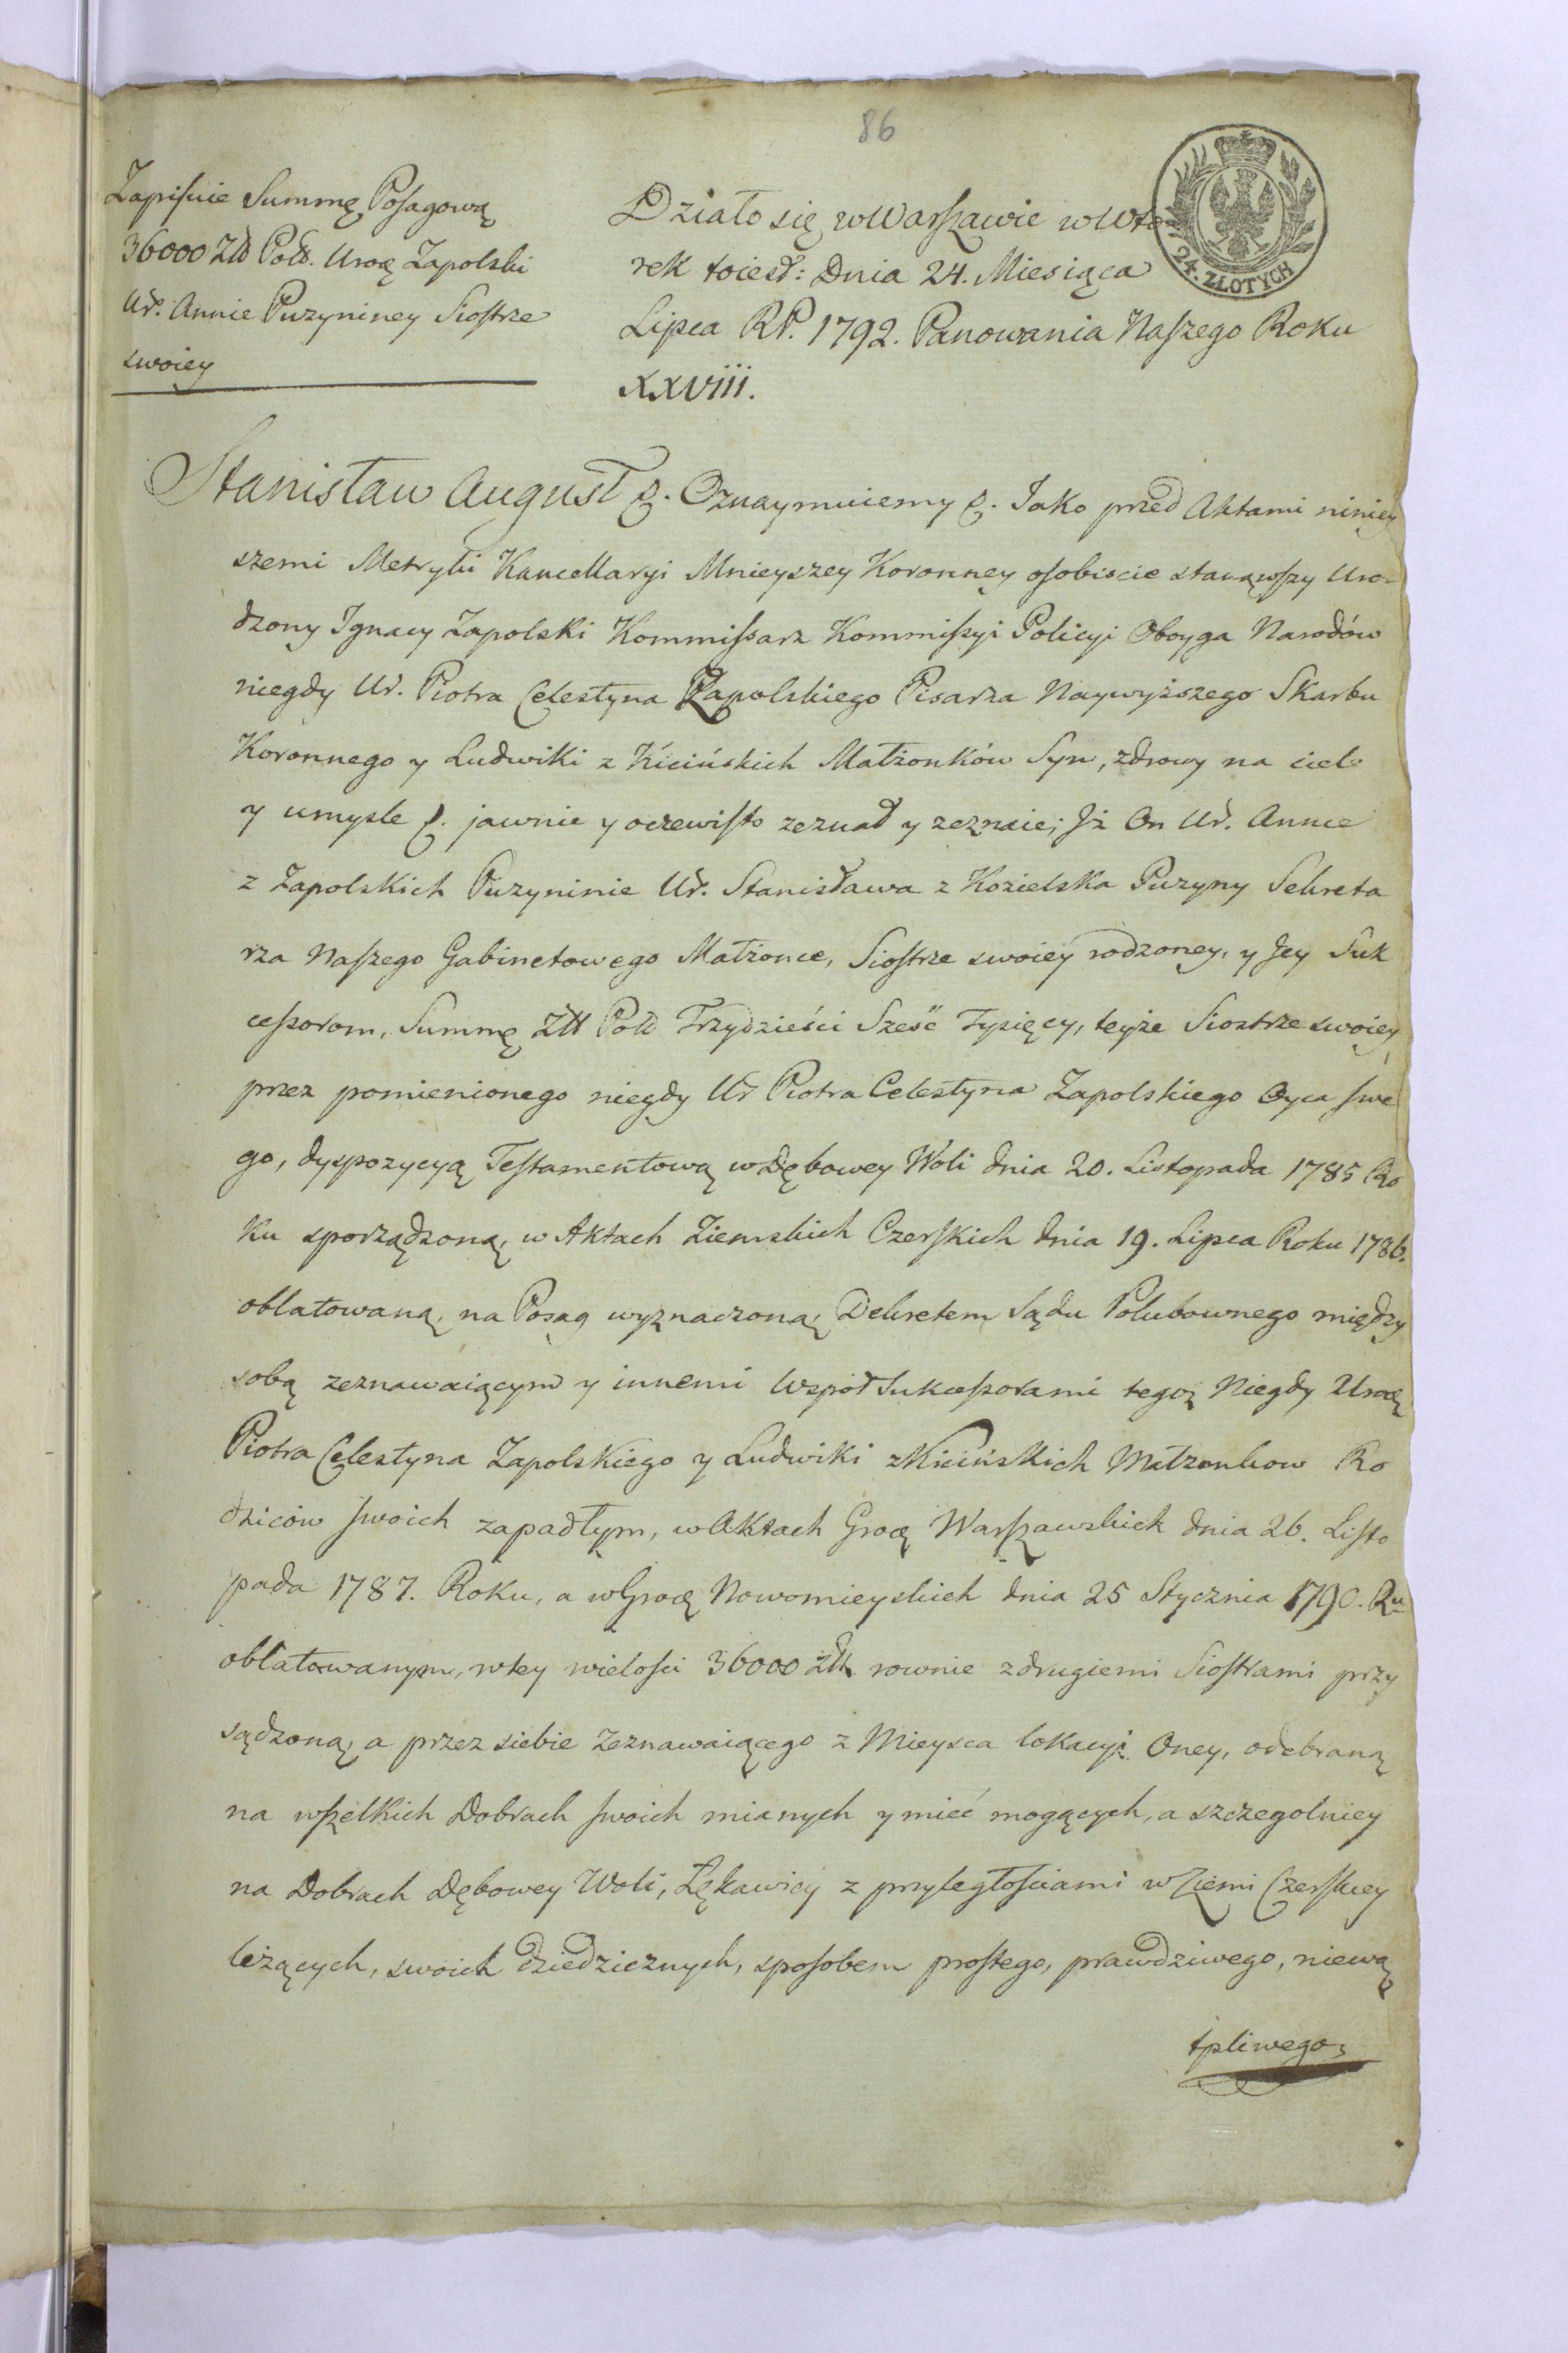 86
Zapisuie Summę Posagową
36000 Złł Poll. Urocę Zapolski
Ur. Annie Puzyniney Siostrze
swoiey
Działo się w Warszawie w Wto
rek toiest: Dnia 24. Miesiąca
Lipca RP. 1792. Panowania Naszego Roku
XXVIII.
24. ZŁOTYCH
Stanisław August &. Oznaymuiemy &. Jako przed Aktami niniey
szemi Metryki Kancellaryi Mnieyszey Koronney osobiscie stanąwszy Uro-
dzony Ignacy Zapolski Kommissarz Kommissyi Policyi Oboyga Narodów
niegdy Ur. Piotra Celestyna Zapolskiego Pisarza Naywyższego Skarbu
Koronnego y Ludwiki z Kicińskich Małżonków Syn, zdrowy na ciele
y umysle &. jawnie y oczewisto zeznał y zeznaie; Jż On Ur. Annie
z Zapolskich Puzyninie Ur. Stanisława z Kozielska Puzyny Sekreta
rza Naszego Gabinetowego Małżonce, Siostrze swoiey rodzoney, y Jey Suk
cessorom, Summę Złł Poll Trzydzieści Sześć Tysięcy, teyże Siostrze swoiey
przez pomienionego niegdy Ur Piotra Celestyna Zapolskiego Oyca swe
go, dyspozycyą Testamentową w Dębowey Woli dnia 20. Listopada 1785 Ro
ku sporządzoną, w Aktach Ziemskich Czerskich dnia 19. Lipca Roku 1786.
oblatowaną, na Posag wyznaczoną, Dekretem Sądu Polubownego między
sobą zeznawaiącym y innemi Współ Sukcessorami tegoż Niegdy Urocę
Piotra Celestyna Zapolskiego y Ludwiki z Kicińskich Małzonkow Ro
dziców swoich zapadłym, w Aktach Grocę Warszawskich dnia 26. Listo
pada 1787. Roku, a w Grocę Nowomieyskich dnia 25 Stycznia 1790. Ru
oblatowanym, w tey wielości 36000 złł rownie z drugiemi Siostrami przy
sądzoną, a przez siebie Zeznawaiącego z Mieysca lokacyi Oney, odebraną
na wszelkich Dobrach swoich mianych y mieć mogących, a szczegolniey
na Dobrach Dębowey Woli, Łękawicy z przyległościami w Ziemi Czerskiey
leżących, swoich dziedzicznych, sposobem prostego, prawdziwego, niewą
tpliwego,